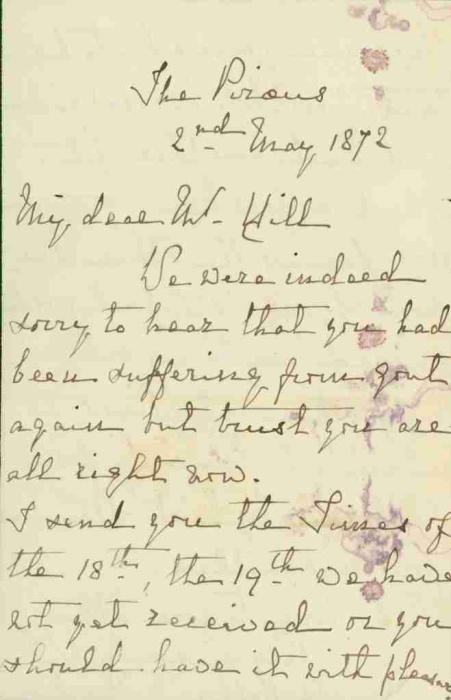 The Piraeus
2nd May 1872
My dear Mr Hill
We were indeed
sorry to hear that you had
been suffering from gout
again but trust you are
all right now.
I send you the Times of
the 18th, the 19th we have
not yet received or you
should have it with pleasure